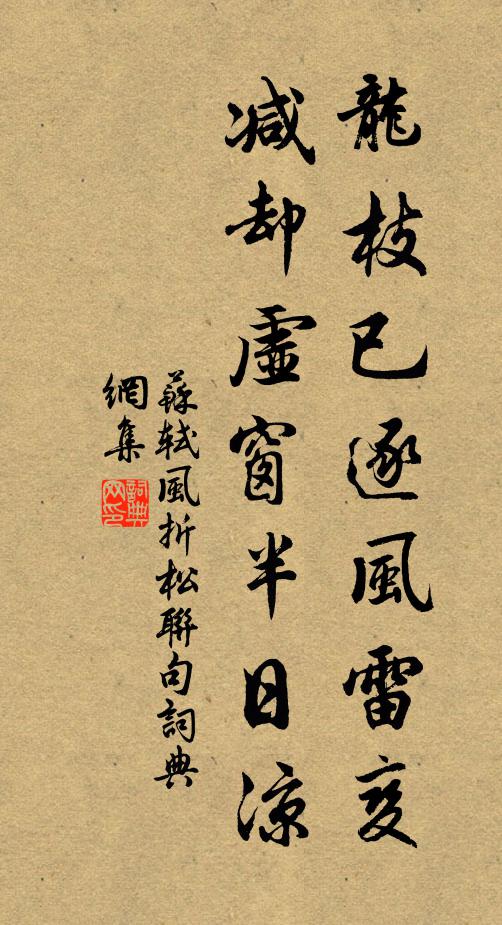 龍枝已逐風雷変
减却虛窗半日涼
蘇軾風折松聯句詞典
網集
詞典
网印